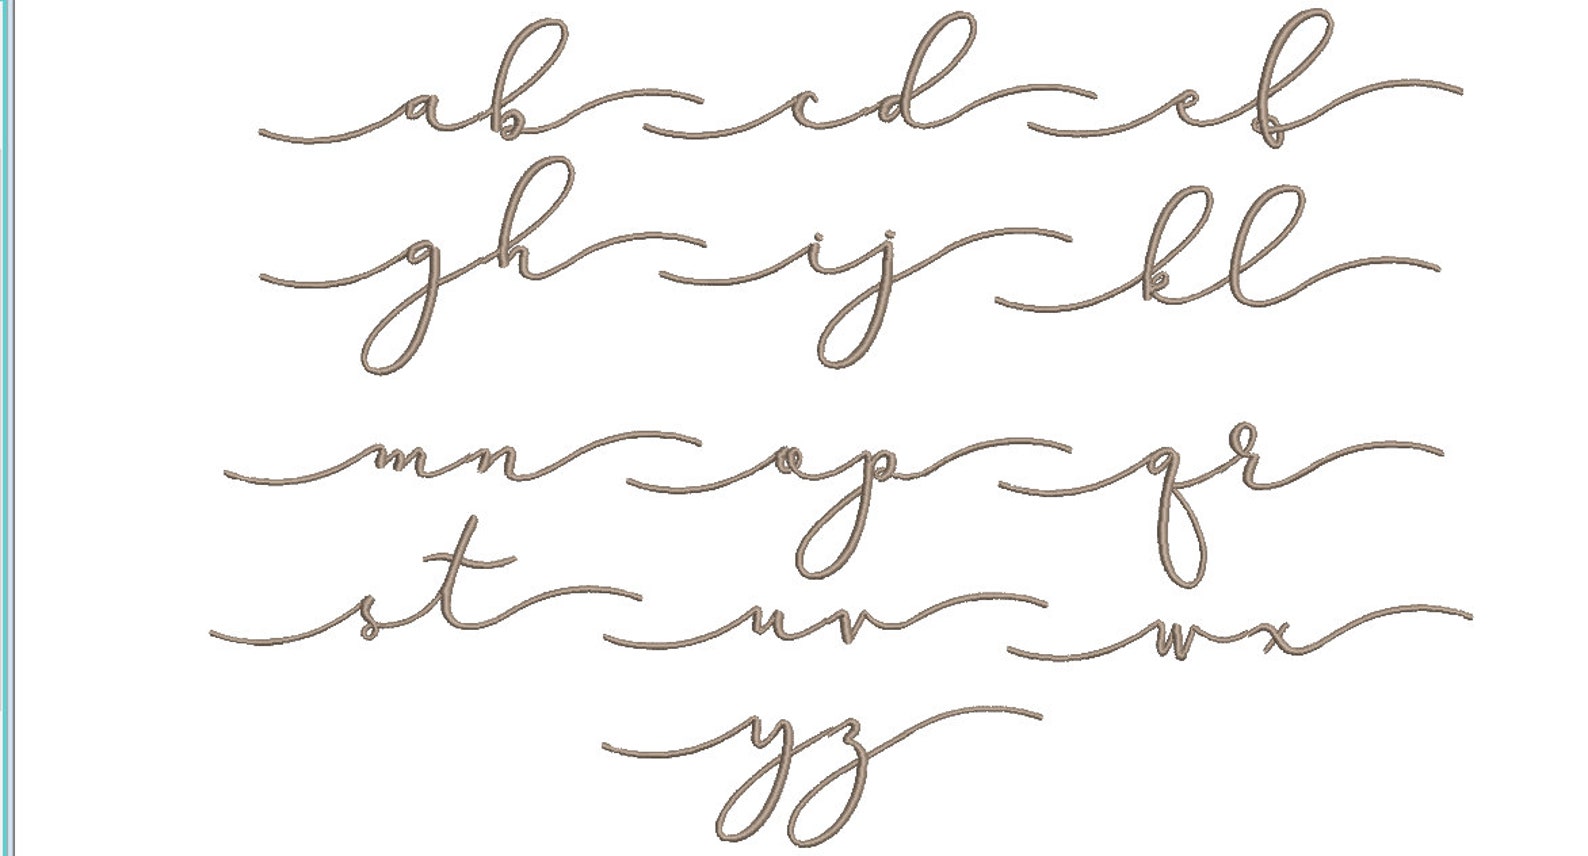 ab cd ef
gh ij kl
mn op qr
st uv wx
yz